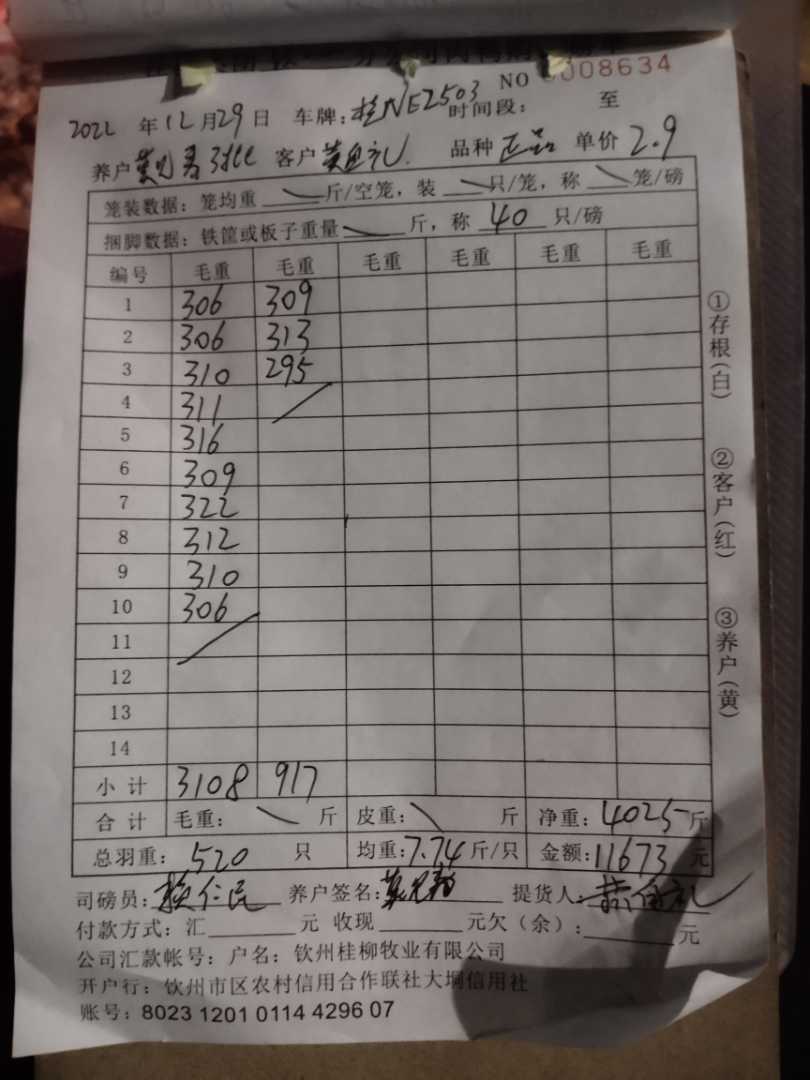 NO 0008634
2022 年 12 月 29 日 车牌: 桂NE2503 时间段: 至
养户 客户 品种 正品 单价 2.9
笼装数据: 笼均重 斤/空笼, 装 只/笼, 称 笼/磅
捆脚数据: 铁筐或板子重量 斤, 称 40 只/磅
编号 毛重 毛重 毛重 毛重 毛重 毛重
1 306 309
2 306 313
3 310 295
4 311
5 316
6 309
7 322
8 312
9 310
10 306
11
12
13
14
小计 3108 917
合计 毛重: 斤 皮重: 斤 净重: 4025 斤
总羽重: 520 只 均重: 7.74 斤/只 金额: 11673 元
司磅员: 养户签名: 提货人:
付款方式: 汇 元 收现 元欠(余): 元
公司汇款帐号: 户名: 钦州桂柳牧业有限公司
开户行: 钦州市区农村信用合作联社大垌信用社
账号: 8023 1201 0114 4296 07
①存根(白)
②客户(红)
③养户(黄)